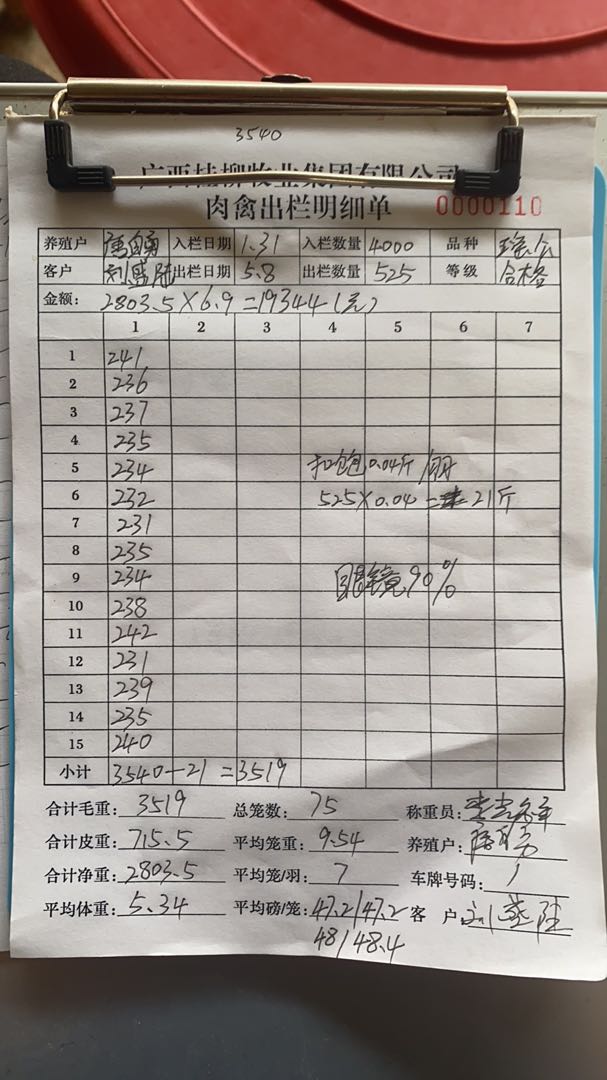 3540
广西桂柳牧业集团有限公司
肉禽出栏明细单 0000110
养殖户 入栏日期 1.31 入栏数量 4000 品种
客户 刘盛陆 出栏日期 5.8 出栏数量 525 等级 合格
金额: 2803.5×6.9=19344(元)
1 2 3 4 5 6 7
1 241
2 236
3 237
4 235
5 234 扣饱0.04斤/羽
6 232 525×0.04=21斤
7 231
8 235
9 234 眼镜90%
10 238
11 242
12 231
13 239
14 235
15 240
小计 3540-21=3519
合计毛重: 3519 总笼数: 75 称重员:
合计皮重: 715.5 平均笼重: 9.54 养殖户:
合计净重: 2803.5 平均笼/羽: 7 车牌号码: 1
平均体重: 5.34 平均磅/笼: 47.2/47.2 客户: 刘盛陆
48/48.4